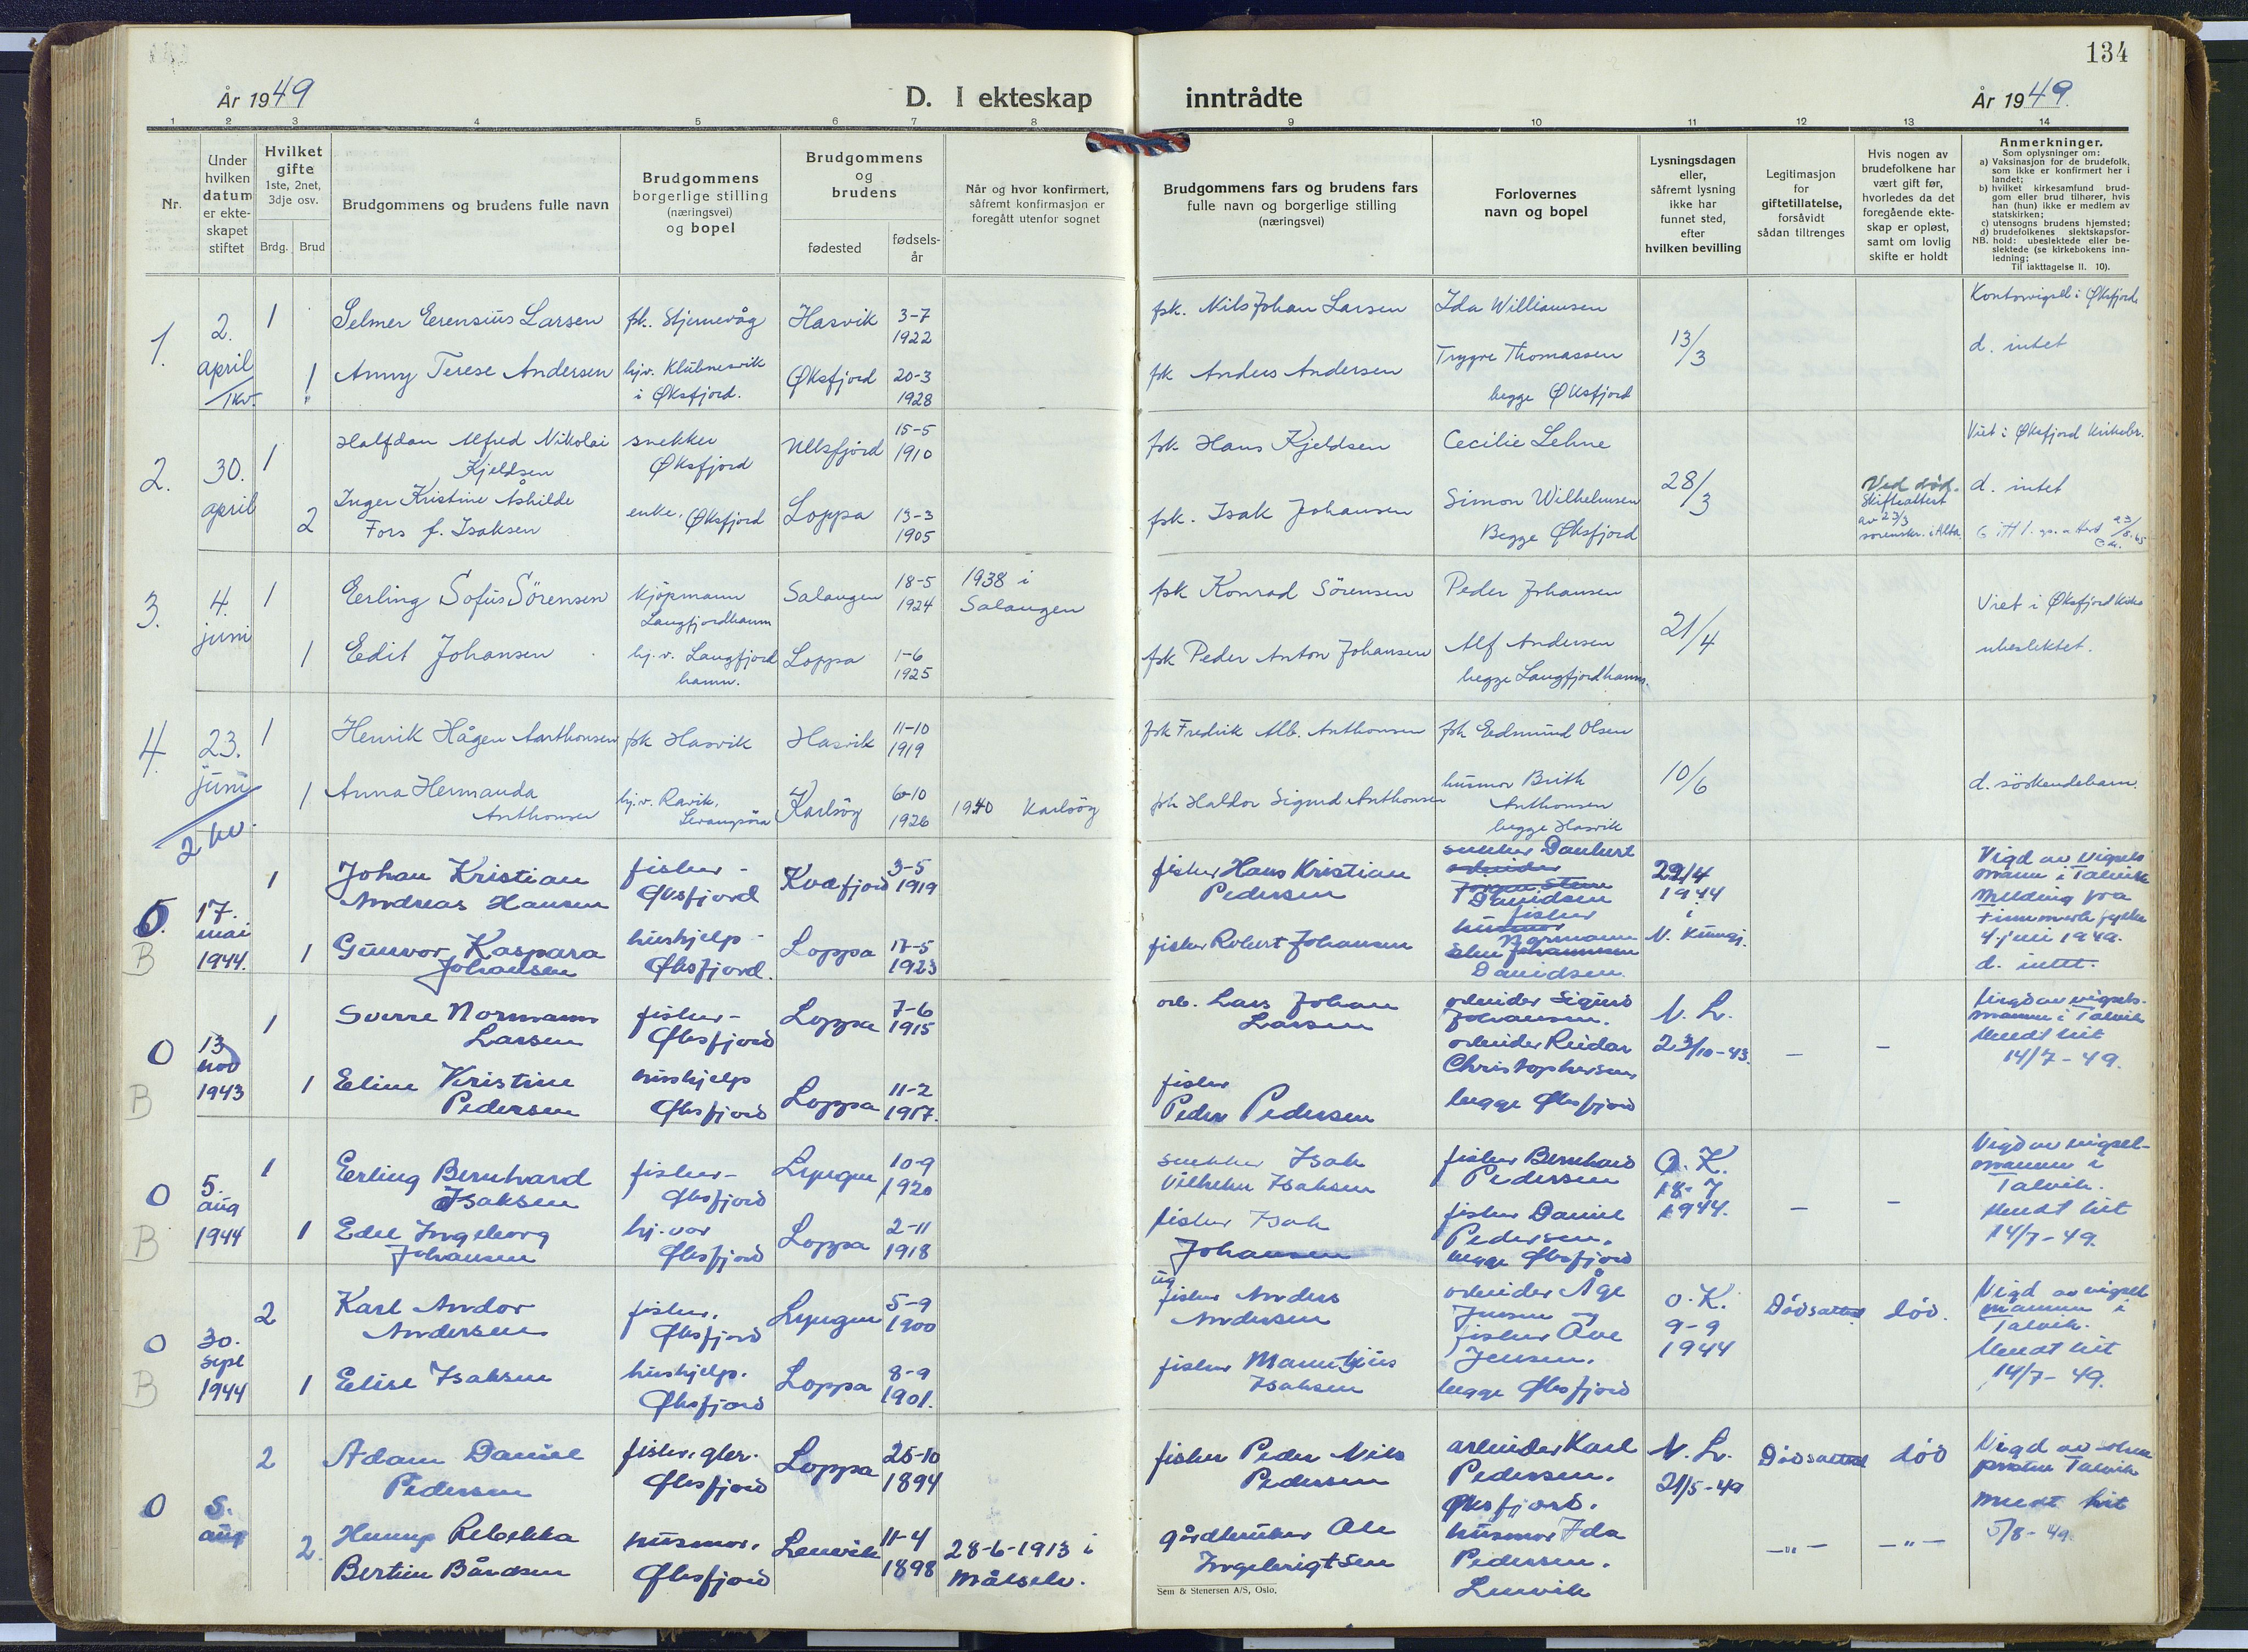 134
År 1949
D. I ekteskap inntrådte
År 1949.
1 2 3 4 5 6 7 8 9 10 11 12 13 14
Nr.
Under hvilken datum er ekteskapet stiftet
Hvilket gifte
1ste, 2net, 3dje osv.
Brdg. Brud
Brudgommens og brudens fulle navn
Brudgommens borgerlige stilling (næringsvei) og bopel
Brudgommens og brudens
fødested
fødsels-år
Når og hvor konfirmert, såfremt konfirmasjon er foregått utenfor sognet
Brudgommens fars og brudens fars fulle navn og borgerlige stilling (næringsvei)
Forlovernes navn og bopel
Lysningsdagen eller, såfremt lysning ikke har funnet sted, efter hvilken bevilling
Legitimasjon for giftetillatelse, forsåvidt sådan tiltrenges
Hvis nogen av brudefolkene har vært gift før, hvorledes da det foregående ekteskap er opløst, samt om lovlig skifte er holdt
Anmerkninger.
Som oplysninger om:
a) Vaksinasjon for de brudefolk, som ikke er konfirmert her i landet;
b) hvilket kirkesamfund brudgom eller brud tilhører, hvis han (hun) ikke er medlem av statskirken;
c) utensogns brudens hjemsted;
d) brudefolkenes slektskapsforhold: ubeslektede eller beslektede (se kirkebokens innledning;
NB.
Til iakttagelse II. 10).
1. 2. april 1 Selmer Erensius Larsen fsk. Stjernevåg Hasvik 3-7 1922 fsk. Nils Johan Larsen Ida Williamsen 13/3 Kontorvigsel i Øksfjord
1kv. 1 Anny Terese Andersen hj.v. Klubnesvik i Øksfjord. Øksfjord 20-3 1928 fsk Anders Andersen Trygve Thomassen begge Øksfjord d. intet
2. 30. april 1 Halfdan Alfred Nikolai Kjeldsen snekker Øksfjord Ullsfjord 15-5 1910 fsk Hans Kjeldsen Cecilie Lehne 28/3 Viet i Øksfjord
2 Inger Kristine Åshilde Fors f. Isaksen enke. Øksfjord Loppa 13-3 1905 fsk. Isak Johansen Simon Wilhelmsen Begge Øksfjord Ved død. Skifteattest av 23/3 sorenskr. i Alta d. intet
3. 4. juni 1 Erling Sofus Sörensen kjöpmann Langfjordhamn Salangen 18-5 1924 1938 i Salangen fsk Konrad Sörensen Peder Johansen 21/4 Viet i Øksfjord
1 Edit Johansen hj.v. Langfjord hamn. Loppa 1-6 1925 fsk Peder Anton Johansen Alf Andersen begge Langfjordhamn. ubeslektet.
4. 23. juni 1 Henrik Hågen Anthonsen fsk Hasvik Hasvik 11-10 1919 fsk Fredrik Alb. Anthonsen fsk Edmund Olsen 10/6
2 kv. 1 Anna Hermanda Anthonsen hj.v. Karlsöy 6-10 1926 1940 Karlsöy fsk Haldor Sigurd Anthonsen husmor Brith Anthonsen begge Hasvik d. söskendebarn.
5. B 17. mai 1944. 1 Johan Kristian Andreas Hansen fisker - Øksfjord Kvæfjord 3-5 1919 fisker Hans Kristian Pedersen Davidsen fisker 22/4 1944 i Vigd av vigsels mann i Talvik
1 Gunvor Kaspara Johansen hushjelp - Øksfjord. Loppa 17-5 1923 fisker Robert Johansen Normann Davidsen. Melding fra Finnmark fylke 4. juli 1949. d. intet.
0 B 13 nov 1943 1 Sverre Normann Larsen fisker - Øksfjord Loppa 7-6 1915 arb. Lars Johan Larsen arbeider Sigurd Johansen. N. L. 23/10-43. — — vigsels- mann i Talvik
1 Eline Kristine Pedersen hushjelp Øksfjord Loppa 11-2 1917. fisker Peder Pedersen arbeider Reidar Christophersen begge Øksfjord Meldt hit 14/7 - 49.
0 B 5. aug 1944 1 Erling Bernhard Isaksen fisker - Øksfjord Lyngen 10-9 1920 snekker Isak Vilhelm Isaksen fisker Bernhard Pedersen O. K. 18-7 1944. — — Vigd av vigsel- mannen i Talvik.
1 Edel Ingeborg Johansen hj. vør Øksfjord Loppa 2-11 1918 fisker Isak Johansen fisker Daniel Pedersen. begge Øksfjord Meldt hit 14/7 - 49.
0 B 30. sept 1944 2 Karl Andor Andersen fisker. Øksfjord Lyngen 5-9 1900 fisker Anders Andersen arbeider Åge Jensen og O. K. 9-9 1944 Dödsattest död. Vigd av vigsel mannen i Talvik.
1 Elise Isaksen hushjelp. Øksfjord Loppa 8-9 1901. fisker Isaksen fisker Ove Jensen. begge Øksfjord Meldt hit 14/7 - 49.
0 5. aug 2 Adam Daniel Pedersen fisker, Øksfjord Loppa 25-10 1894 fisker Peder Nils Pedersen arbeider Karl Pedersen. Øksfjord. N. L. 21/5-49 Dödsattest död Vigd av Talvik
2. Rebekka Bertine Bårdsen husmor. Øksfjord Lenvik 11-4 1898 28-6-1913 i Målselv. gårdbruker Ole Ingebrigtsen husmor Ida Pedersen. Lenvik —"— —"— Meldt hit 5/8 - 49.
Sem & Stenersen A/S, Oslo.